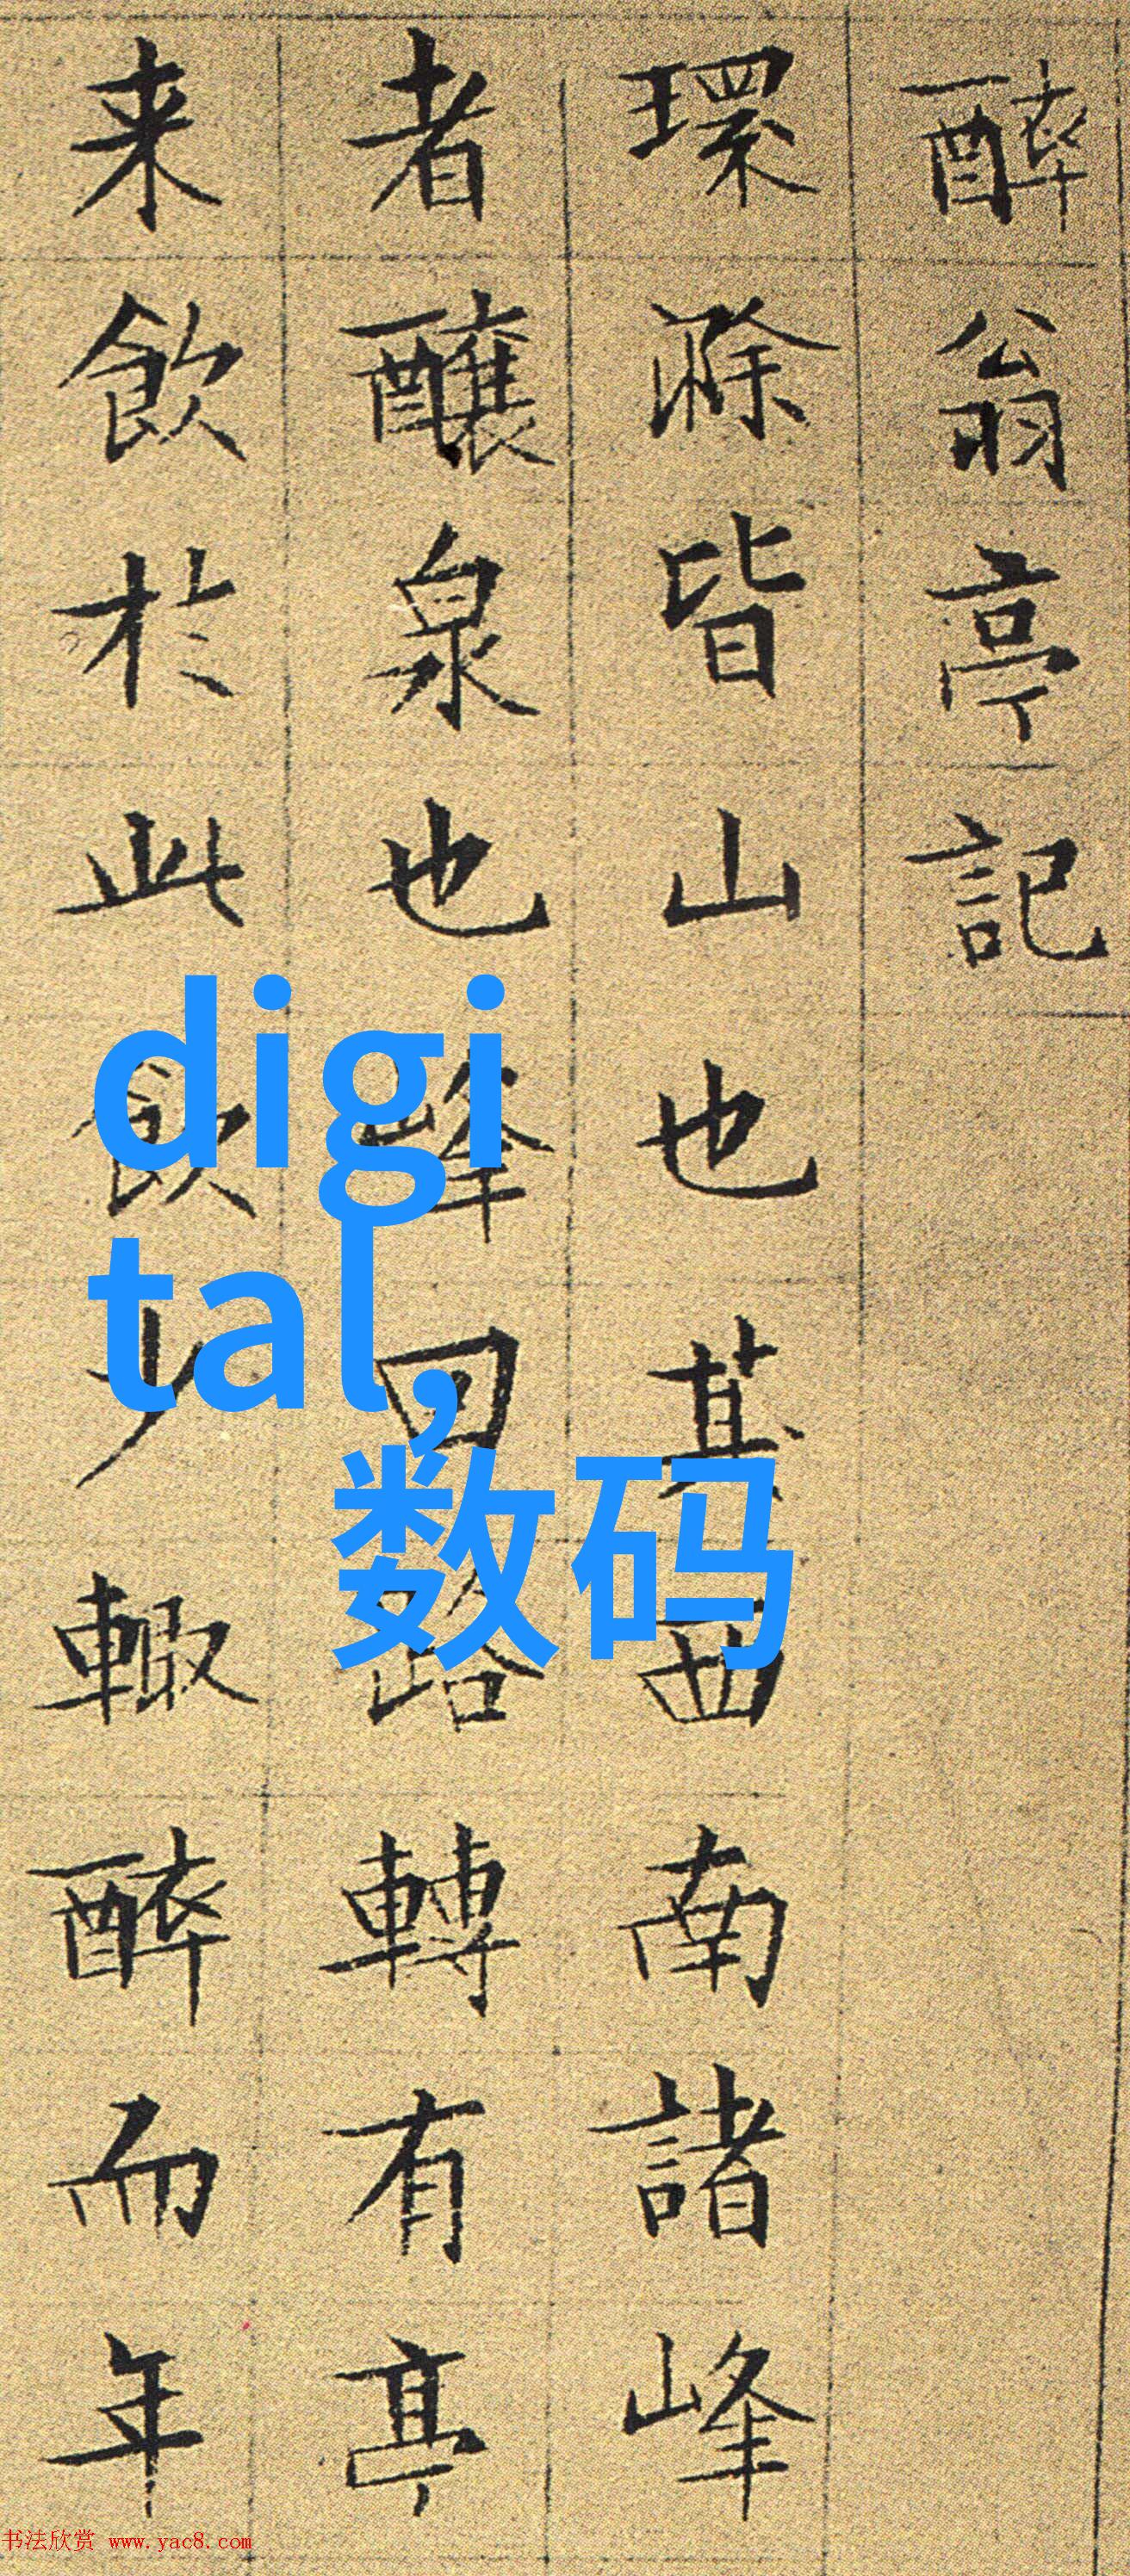 醉翁亭記
環滁皆山也其西南諸峰
者釀泉也峰回路轉有亭
来飲於此飲少輒醉而年
digi
tal,
数码
书法欣赏 www.yac8.com